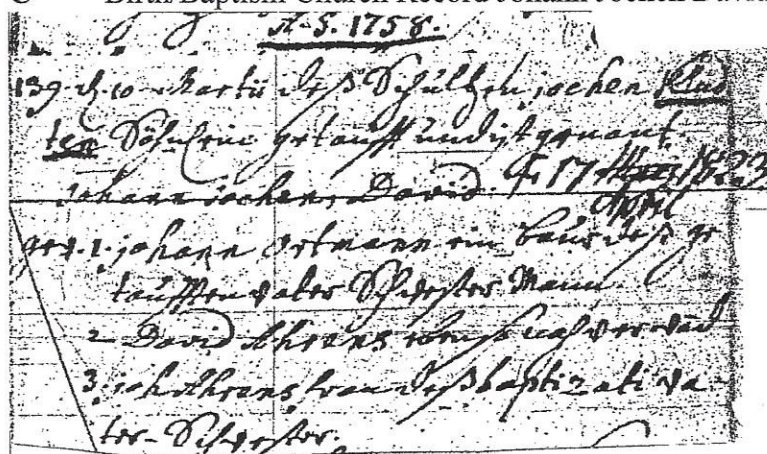 Birth Baptism Church Record Johann Jochen David
A. S. 1758.
139. d. 10 Martii deß Schultzen jochen Klas
ten Söhnlein getaufft und ist genant
Johann jochen David. 17 1823
April
gev. 1. johann Ortmann ein baur deß ge
taufften vater Schwester Mann.
2 David Ahrens
3. joh. Ahrens frau deß baptizati va-
ter-Schwester.